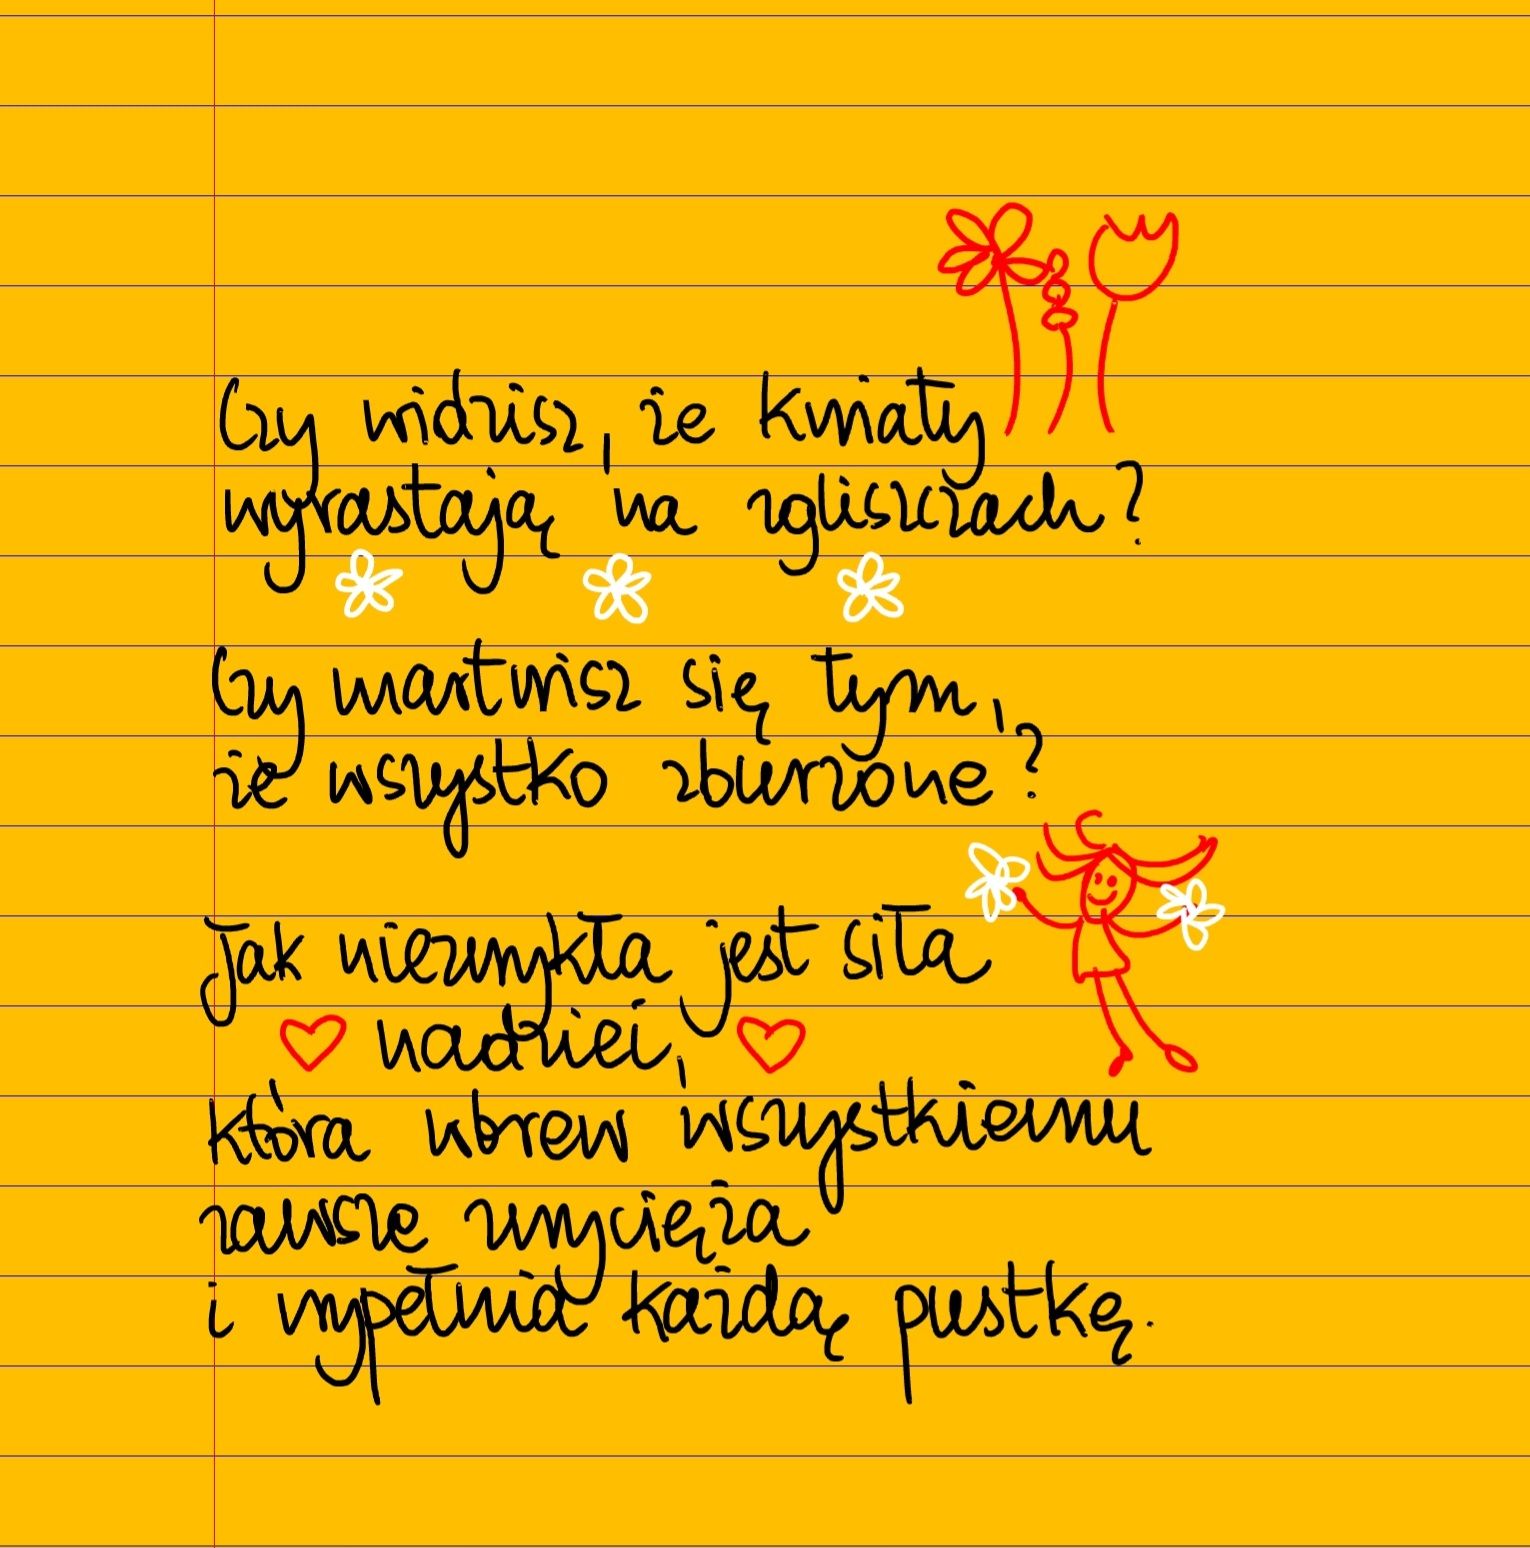 Czy widzisz, że kwiaty
wyrastają na zgliszczach?
Czy martwisz się tym,
że wszystko zburzone?
Jak niezwykła jest siła
nadziei,
która wbrew wszystkiemu
zawsze zwycięża
i wypełnia każdą pustkę.